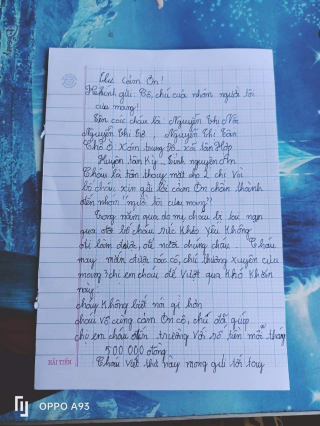 Thư cảm ơn!
Kính gửi: Cô, chú của nhóm người tôi
cưu mang!
Tên các cháu là: Nguyễn Thị
Nguyễn Thị, Nguyễn Thị
Chỗ ở Xóm trung, xã tân Hợp
Huyện tân Kỳ, Tỉnh nghệ An
Cháu là tân thay mặt cho 2 chị Và
bố cháu xin gửi lời cảm ơn chân thành
đến nhóm "người tôi cưu mang"!
Trong năm qua do mẹ cháu bị tai nạn
qua đời bố cháu sức Khỏe yếu Không
đi làm được, để nuôi chúng cháu. Cháu
may mắn được các cô, chú thường xuyên cưu
mang 3 chị em cháu để Vượt qua Khó Khăn
này
cháu Không biết nói gì hơn
cháu vô cùng cảm ơn cô, chú đã giúp
chị em cháu đến trường Với số tiền mỗi tháng
500 000 đồng
Cháu Viết thư này mong gửi tới tay
HẢI TIẾN
OPPO A93